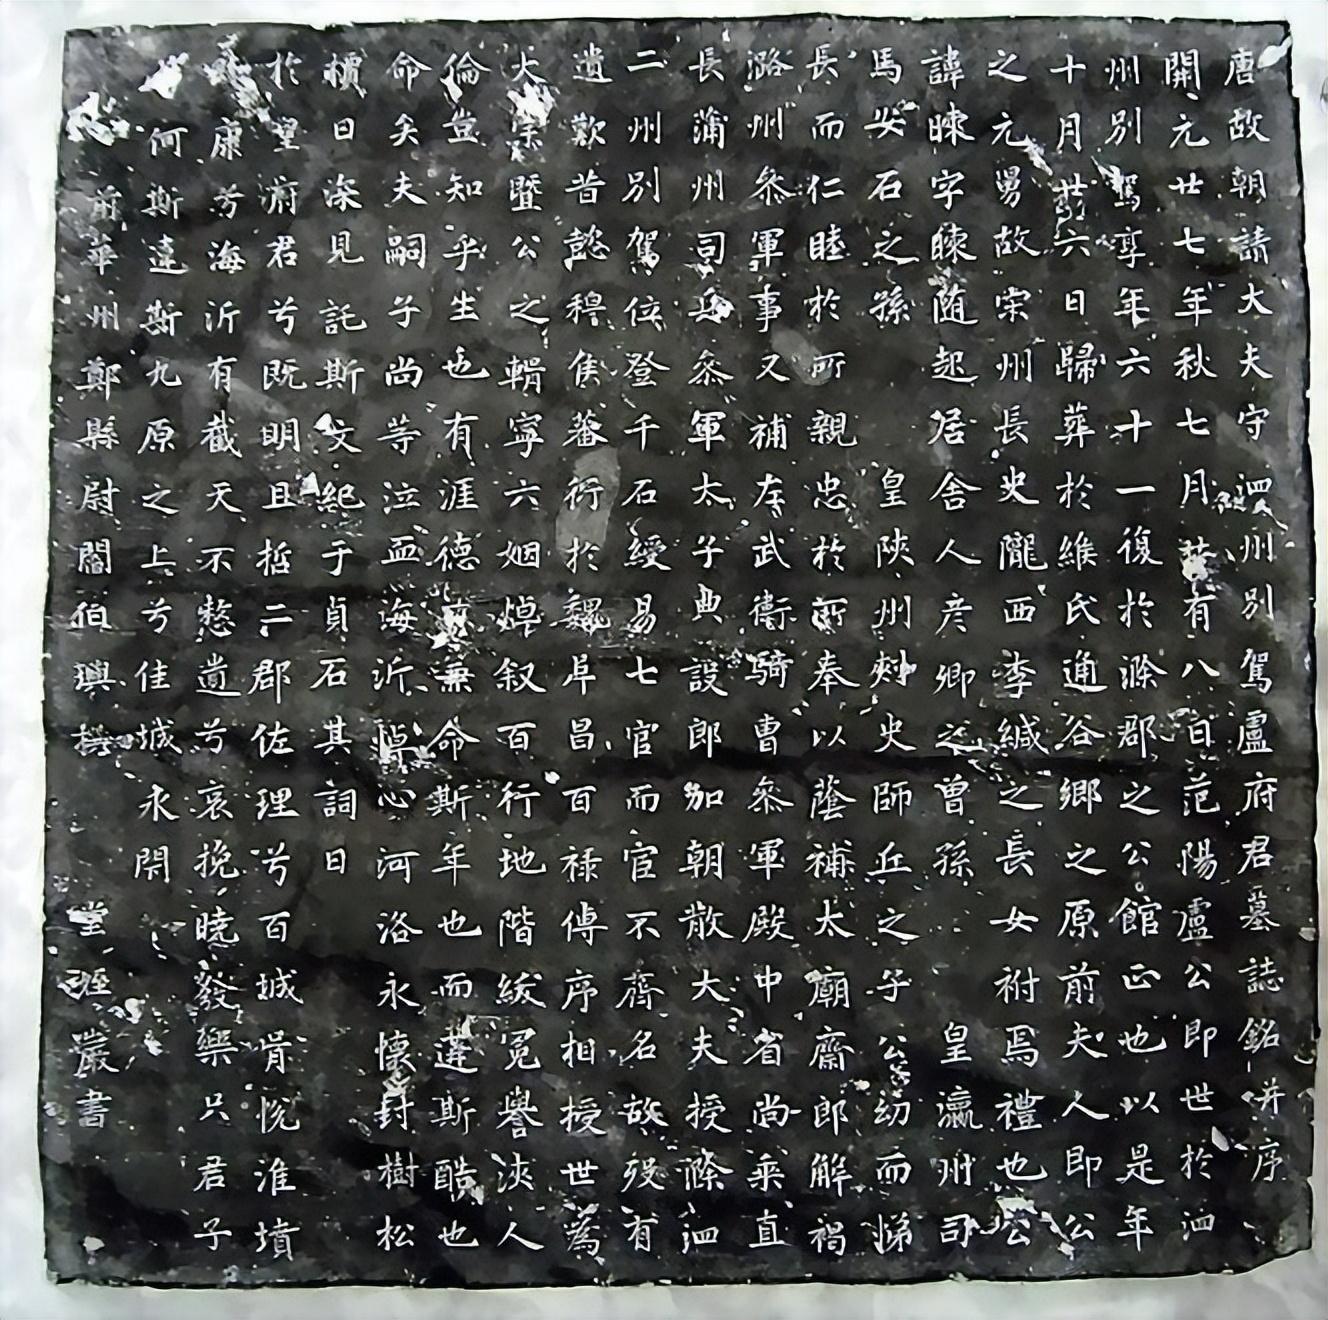 唐故朝請大夫守泗州別駕盧府君墓誌銘并序
開元廿七年秋七月蓂有八日范陽盧公即世於泗
州別駕享年六十一復於滁郡之公館正也以是年
十月廿六日歸葬於緱氏通谷鄉之原前夫人即公
之元舅故棠州長史隴西李緘之長女祔焉禮也公
諱暕字暕隨起居舍人彦卿之曾孫 皇瀛州司
馬安石之孫 皇陝州刾史師丘之子公幼而悌
長而仁睦於所親忠於所奉以蔭補太廟齋郎解褐
潞州叅軍事又補左武衛騎曹叅軍殿中省尚乘直
長蒲州司兵叅軍太子典設郎加朝散大夫授滁泗
二州別駕位登千石綬易七官而宦不齊名故歿有
遺歎昔懿穆隽蕃衍於魏阜昌百祿傳序相授世為
大宗暨公之輯寧六姻焯叙百行地階紱冕譽浹人
倫豈知乎生也有涯德兼命斯年也而遘斯酷也
命矣夫嗣子尚等泣血海沂悼心河洛永懷封樹松
檟日深見託斯文紀于貞石其詞曰
於望府君兮既明且哲二郡佐理兮百城肯悅淮墳
康兮海沂有截天不憗遺兮哀挽曉發樂只君子
何斯違斯九原之上兮佳城永閇
前華州鄭縣尉閻伯璵撰 堂姪巖書